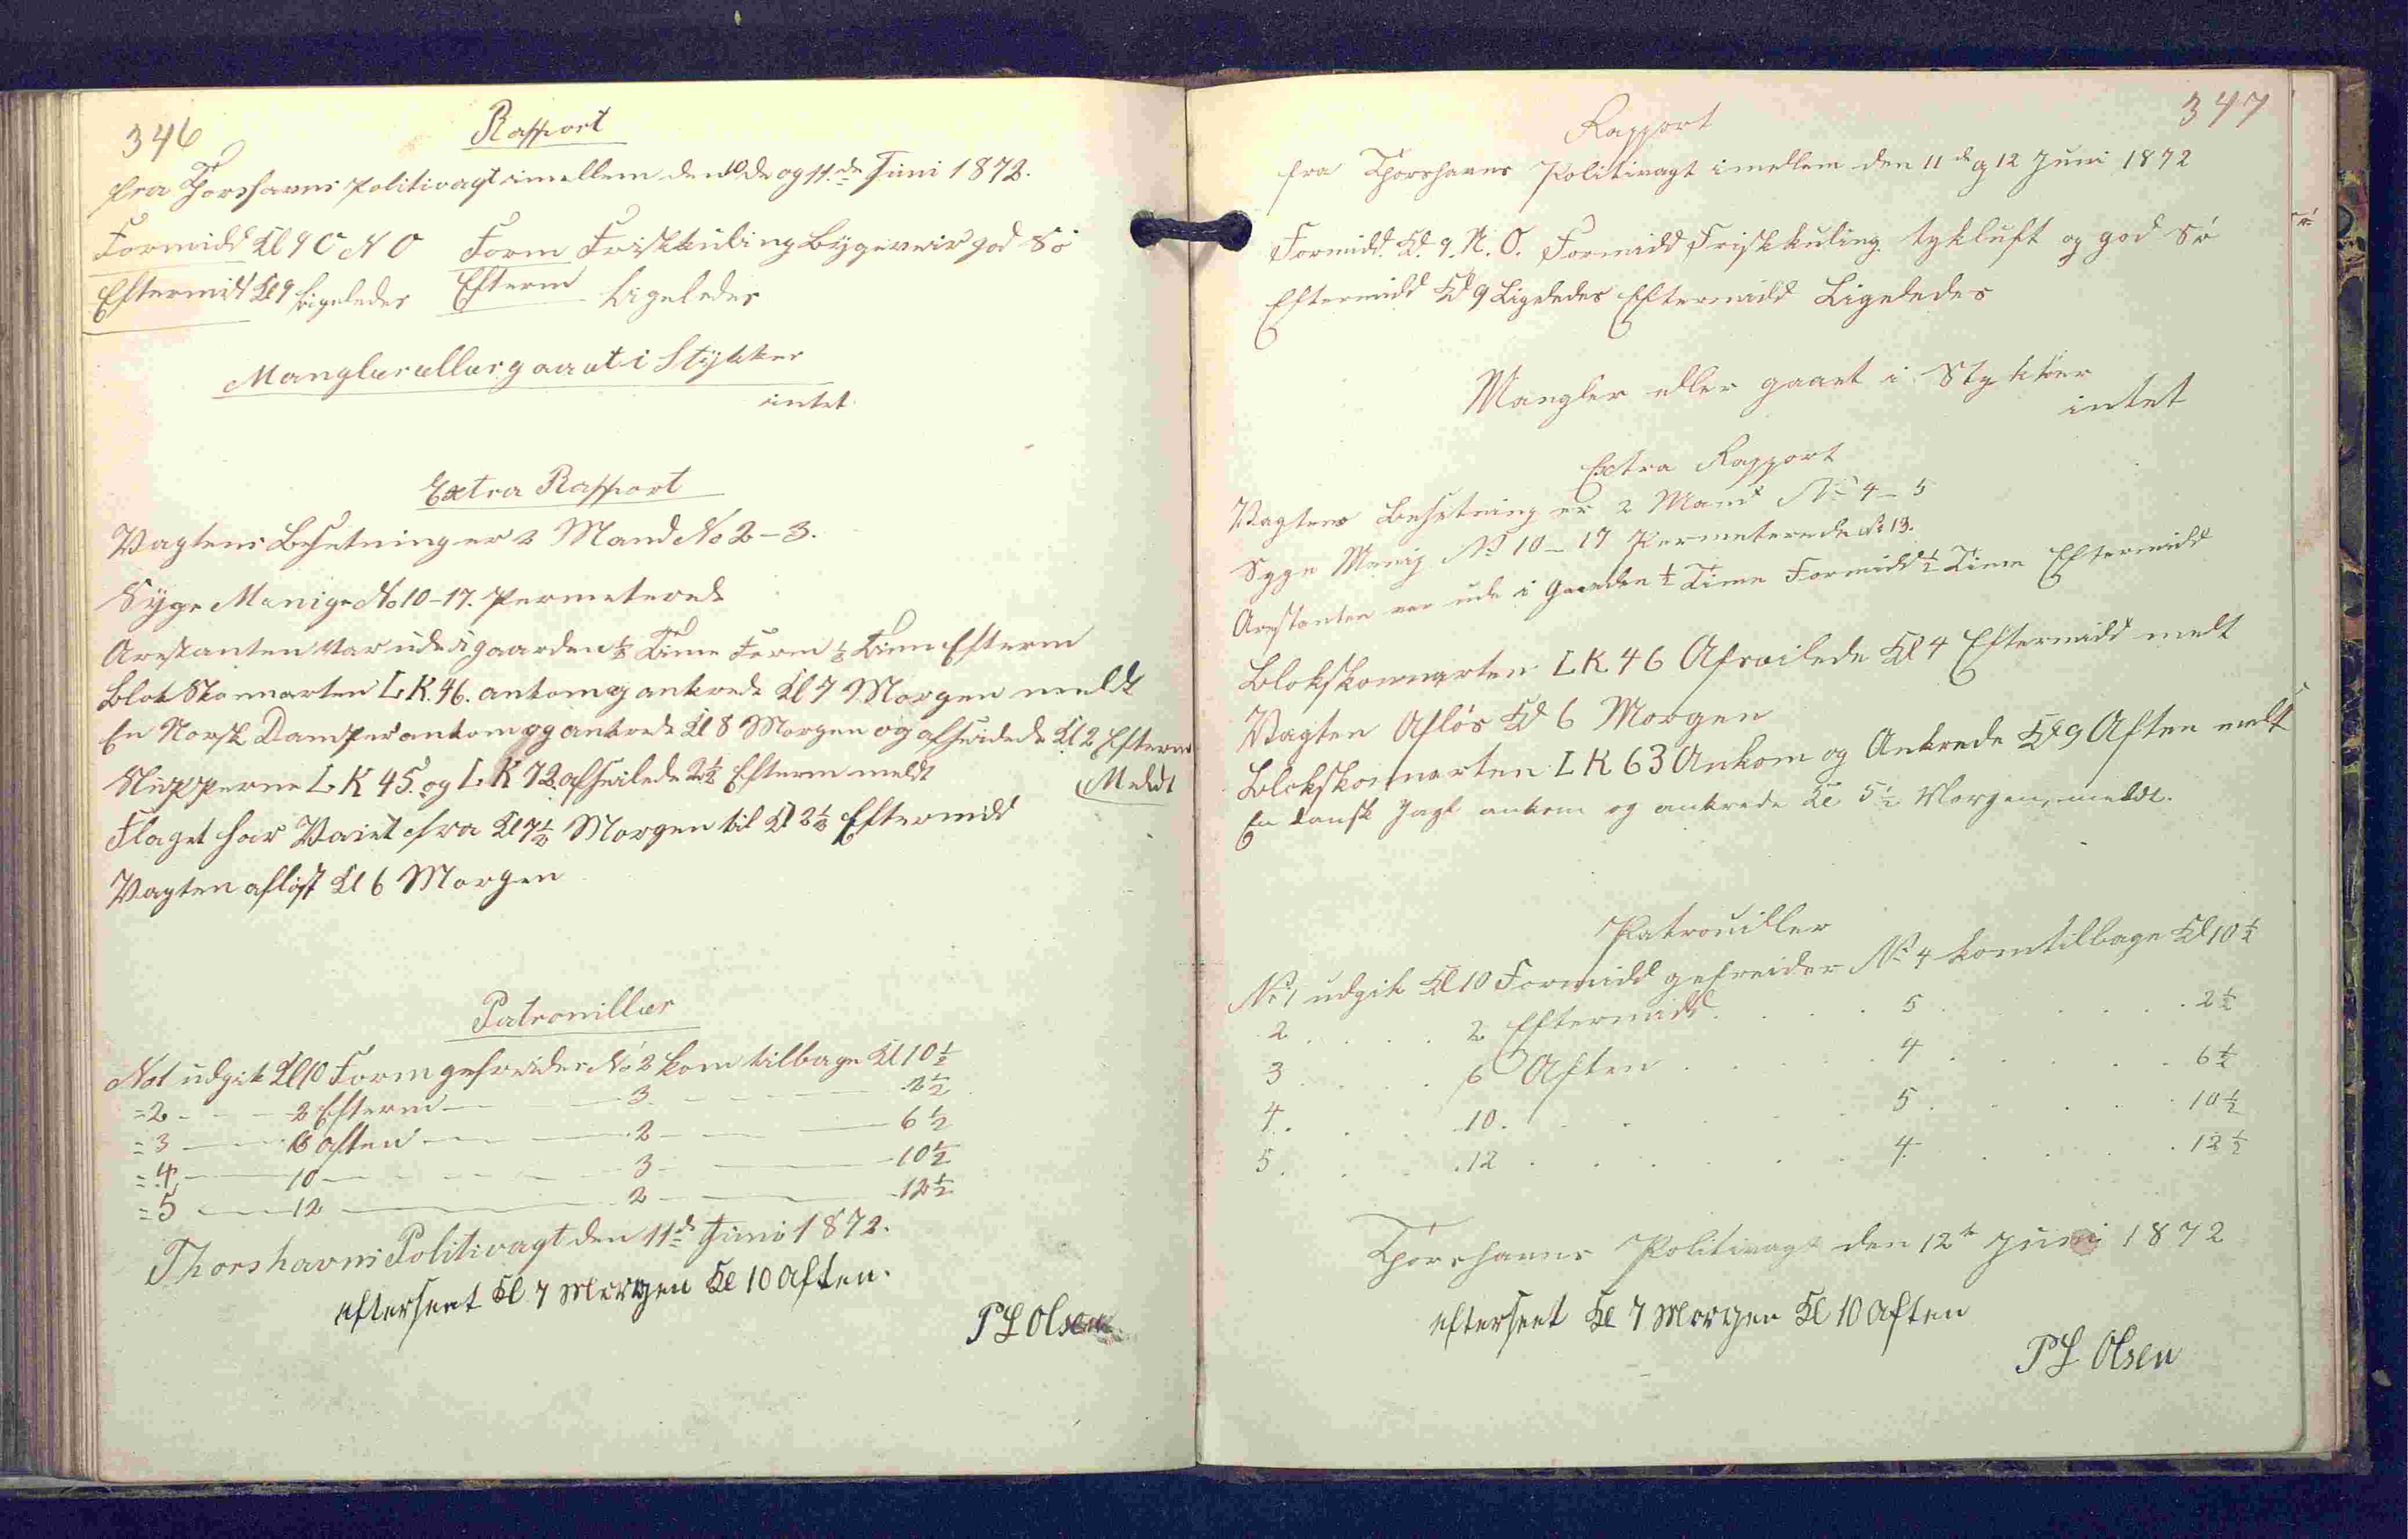 346
Rapport
fra Thorshavns Politivagt imellem den 10de og 11te Juni 1872.
Formidd Kl 9 O N O Form Friskkuling Bygeveir god Sö
Eftermidd Kl 9 Ligeledes Efterm Ligeledes
Mangler eller gaaet i Stykker
intet
Extra Rapport
Vagtens Besetning er 2 Mand No 2-3.
Syge Menige No 10-17. Permeterede
Arestanten var ude i gaarden ½ Time Form ½ Time Efterm
Blok Skonnarten LK. 46. ankom og ankrede Kl 7 Morgen meldt
En Norsk Damper ankom og ankrede Kl 8 Morgen og afseilede Kl 2 Efterm
Meldt
Slupperne LK 45. og LK 72. afseilede 2½ Efterm meldt
Flaget har Vaiet fra Kl 7½ Morgen til Kl 2½ Eftermidd
Vagten afløst Kl 6 Morgen
Patrouiller
No 1 udgik Kl 10 Form gefreider No 2 kom tilbage Kl 10½
=2 - - - 2 Efterm - - 3 - - - 2½
=3 - - 6 Aften - - 2 - - 6½
=4 - - 10 - - - 3 - - 10½
=5 - - 12 - - 2 - - 12½
Thorshavns Politivagt den 11te Juni 1872.
efterseet Kl 7 Morgen Kl 10 Aften.
P L Olsen
347
Rapport
fra Thorshavns Politivagt imellem den 11de og 12 Juni 1872
Formidd. Kl. 9. N. O. Formidd Friskkuling tykluft og god Sö
Eftermidd Kl 9 Ligeledes Eftermidd Ligeledes
Mangler eller gaaet i Stykker
intet
Extra Rapport
Vagtens Besetning er 2 Mand No 4-5
Syge Menig No 10-17 Permeterede No 13.
Arestanten var ude i Gaarden ½ Time Formidd ½ Time Eftermidd
Blokskonnarten LK 46 Afseilede Kl 4 Eftermidd melt
Vagten Aflös Kl 6 Morgen
Blokskonnarten LK 63 Ankom og Ankrede Kl 9 Aften melt
En dansk Jagt ankom og ankrede Kl 5½ Morgen, meldt.
Patrouiller
No 1 udgik Kl 10 Formidd gefreider No 4 kom tilbage Kl 10½
2 . . . . 2 Eftermidd . . . . 5 . . . . 2½
3 . . . . 6 Aften . . . . 4 . . . . 6½
4 . . . 10 . . . . 5 . . . . 10½
5 . . . 12 . . . . 4 . . . . 12½
Thorshavns Politivagt den 12te Juni 1872
efterseet Kl 7 Morgen Kl 10 Aften
P L Olsen